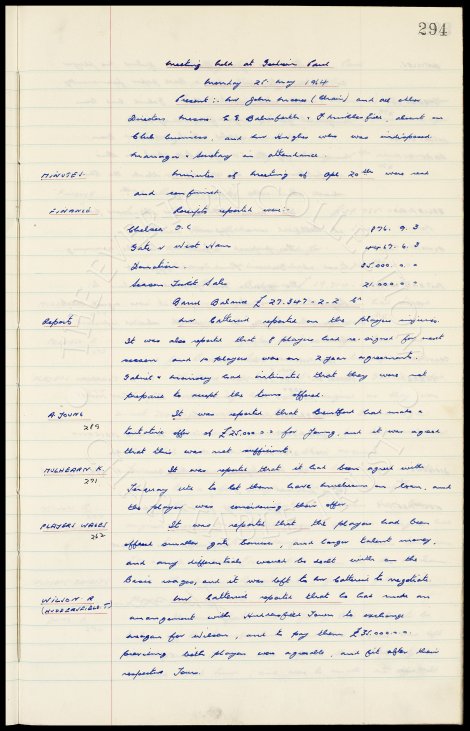 294
Meeting held at Goodison Park
Monday 25 May 1964
Present:- Mr John Moores (Chair) and all other
Directors Messrs E. Holland Hughes
Club business, and Mr
Manager & Secretary in attendance.
MINUTES. Minutes of meeting of Apl 20th were read
and confirmed.
FINANCE Receipts reported were:-
Chelsea F.C 876. 9. 3
Gate v West Ham 4467. 6. 3
Donation. 35.000. 0. 0
Season Ticket Sale 21.000. 0. 0
Bank Balance £ 27.347-2-2
Reports Mr Catterick reported on the players injuries.
It was also reported that 8 players had re-signed for next
season and players was on 2 year agreement.
Gabriel & had intimated that they were not
prepared to accept the terms offered.
A. YOUNG It was reported that Brentford had made a
289 tentative offer of £25000.0.0 for Young, and it was agreed
that this was not sufficient.
MULHEARN K. It was reported that it had been agreed with
291 Torquay Utd to let them have Mulhearn on loan, and
the player was considering their offer.
PLAYERS WAGES It was reported that the players had been
262 offered smaller gate bonuses, and larger talent money,
and any differentials would be dealt with on the
Basic wages, and it was left to Mr Catterick to negotiate.
WILSON R Mr Catterick reported that he had made an
(HUDDERSFIELD. T) arrangement with Huddersfield Town to exchange
Meagan for Wilson, and to pay them £35.000.0.0.
providing both players was agreeable, and fit after their
respective Tours.
THE EVERTON COLLECTION